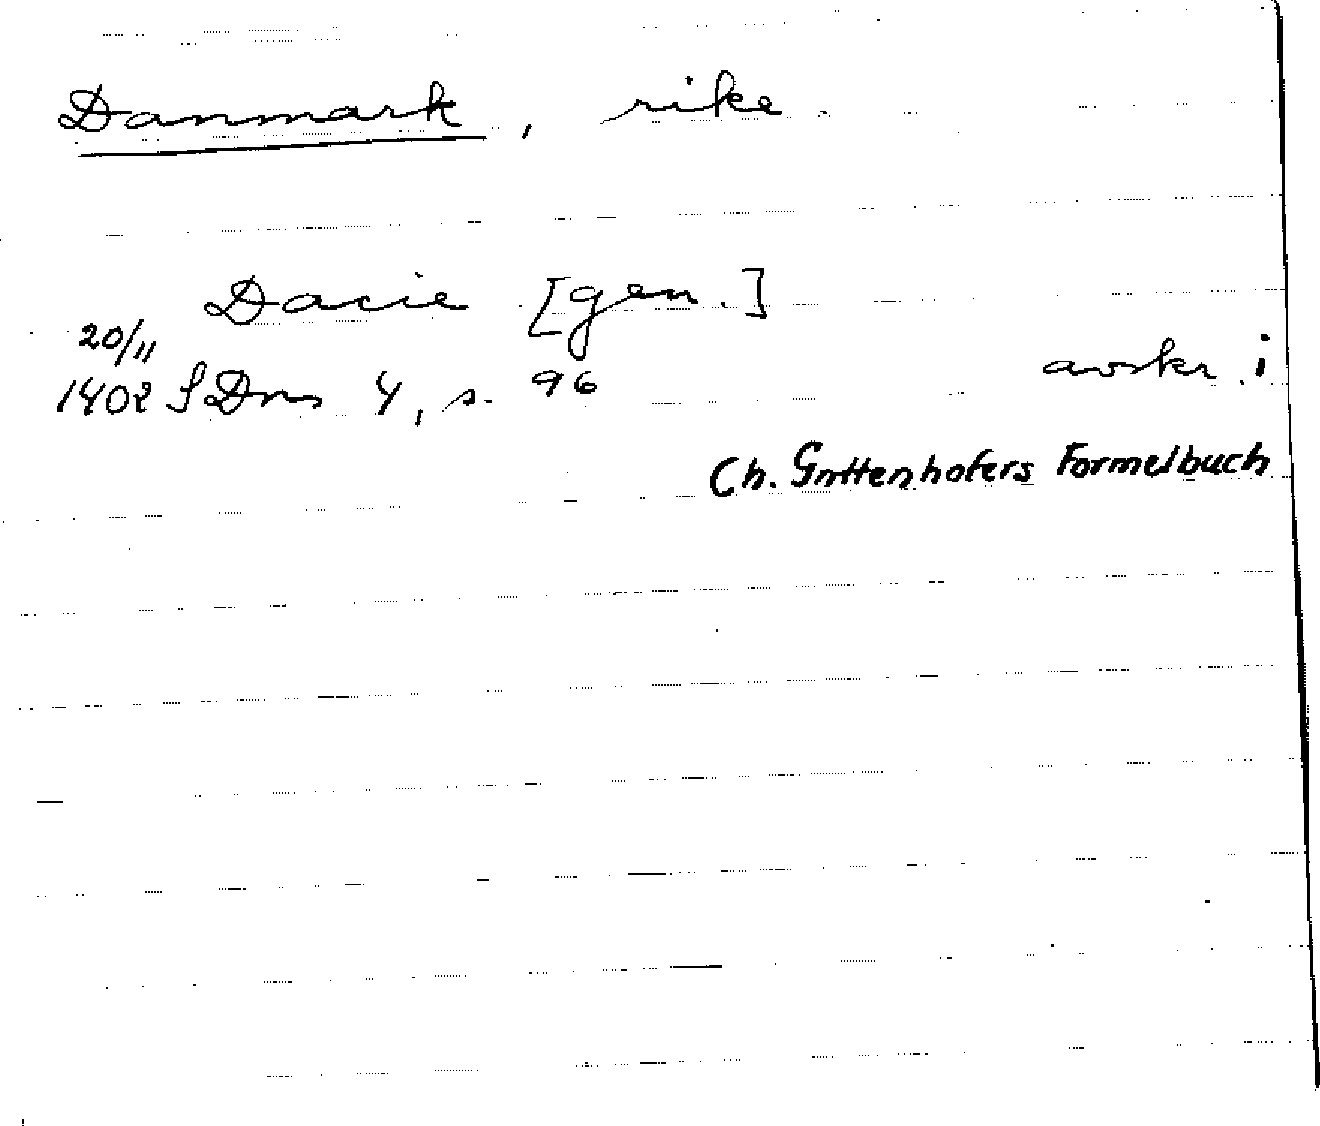 Danmark, rike
Dacie [gen.]
20/11
1402 SDns 4, s. 96 avskr. i
Ch. Gnttenhofers Formelbuch